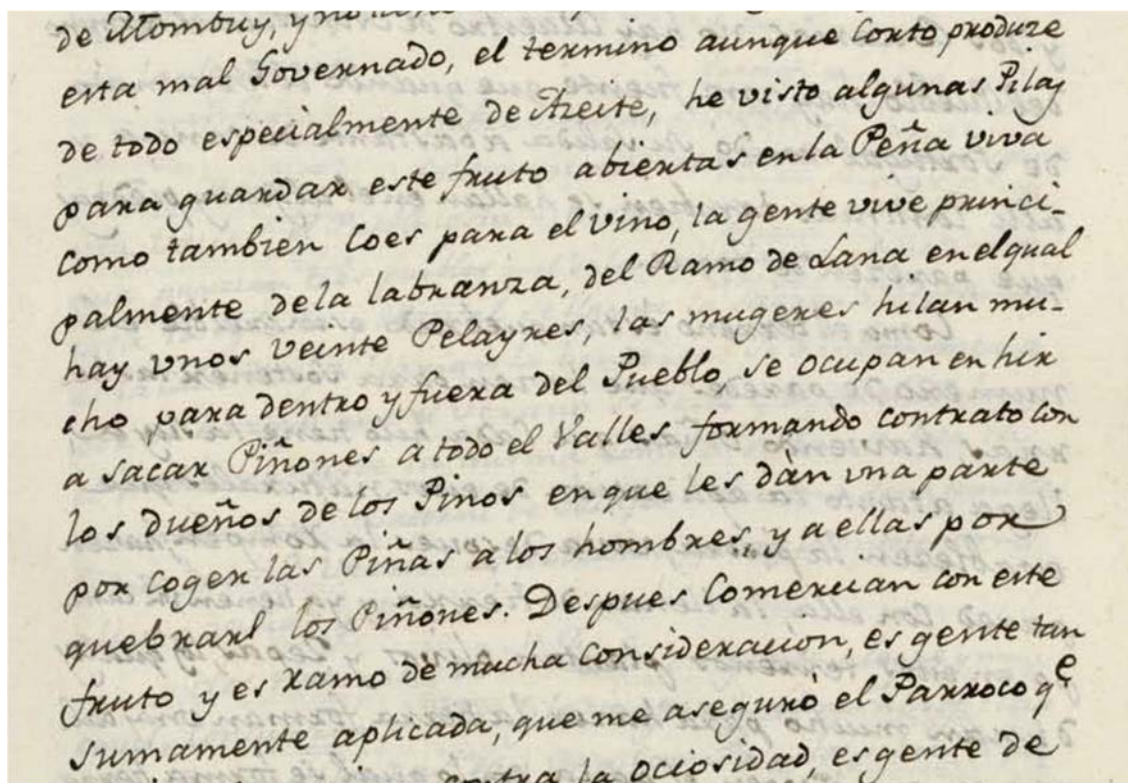 de Mombuy, y no
esta mal Governado, el termino aunque corto produze
de todo especialmente de Azeite, he visto algunas Pilas
para guardar este fruto abiertas en la Peña viva
como tambien loes para el vino, la gente vive princi-
palmente dela labranza, del Ramo de Lana en el qual
hay unos veinte Pelayres, las mugeres hilan mu-
cho para dentro y fuera del Pueblo, se ocupan en hir
a sacar Piñones a todo el Valles formando contrato con
los dueños de los Pinos en que les dàn una parte
por coger las Piñas a los hombres, y a ellas por
quebrar los Piñones. Despues Comercian con este
fruto y es ramo de mucha consideracion, es gente tan
sumamente aplicada, que me aseguró el Parroco qe
contra la ociosidad, es gente de